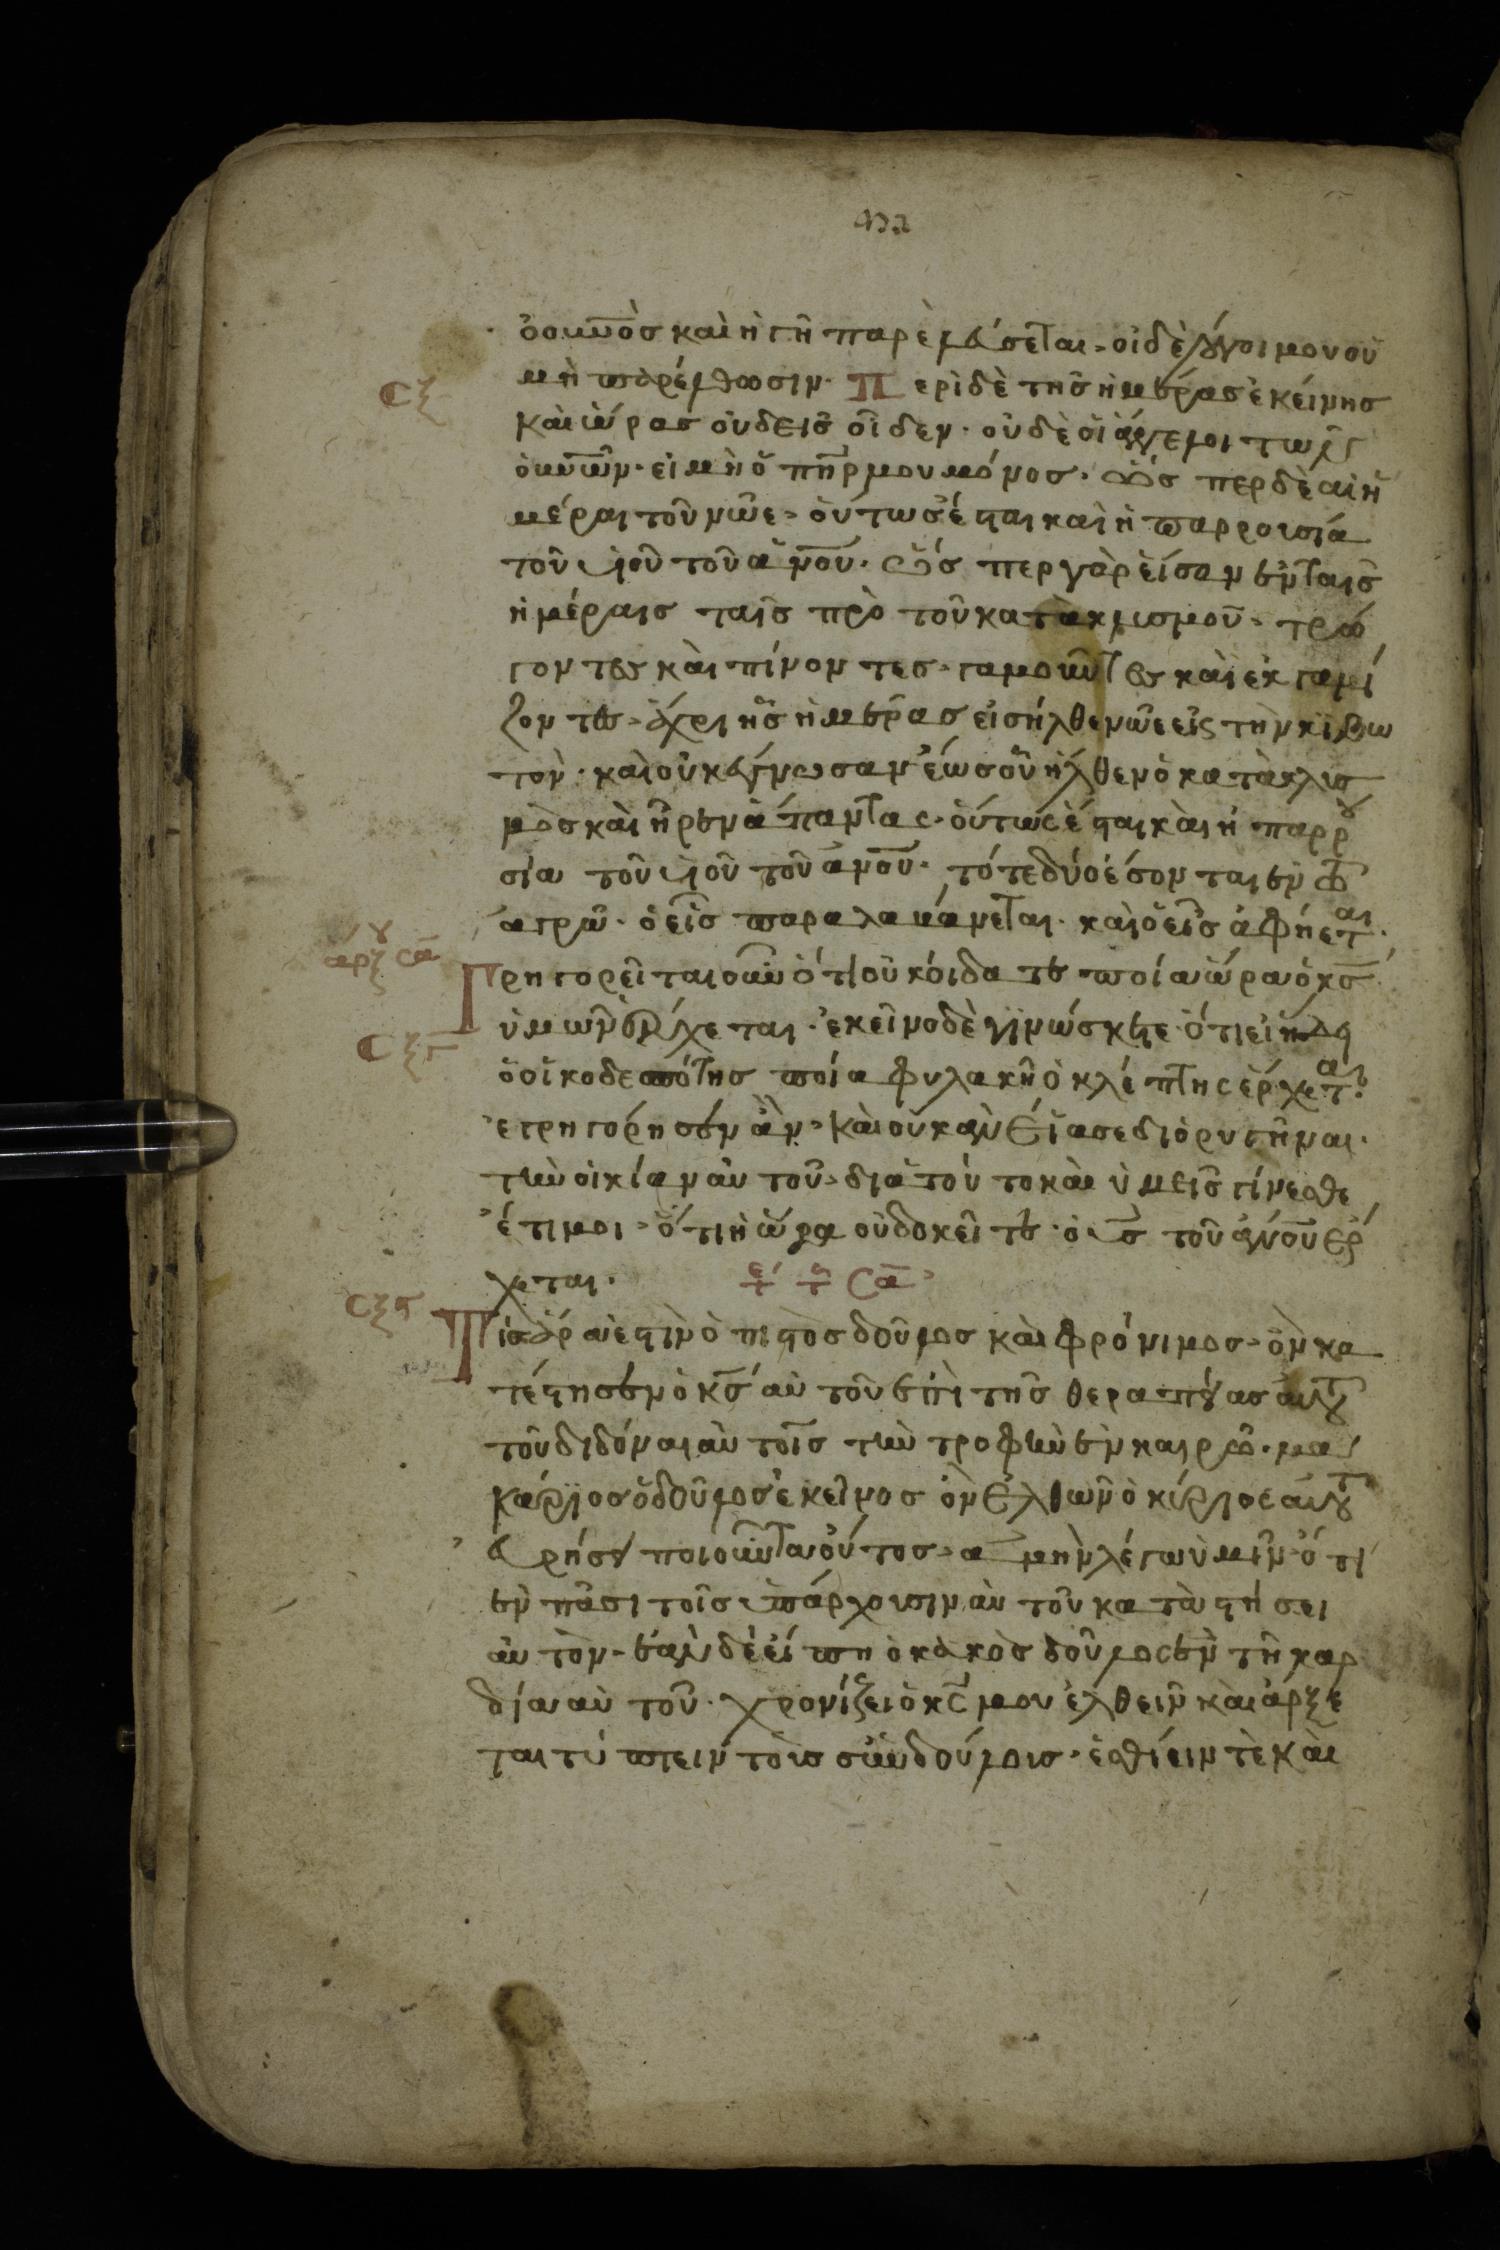 ὁ οὐνὸσ καὶ ἡ γῆ παρελεύσεται· οἱ δὲ λόγοι μου οὐ
μὴ παρέλθωσιν· Περὶ δὲ τῆσ ἡμέρασ ἐκείνησ
σξ
καὶ ὥρασ οὐδεὶσ οἶδεν· οὐδὲ οἱ ἄγγελοι τῶν
οὐνῶν· εἰ μὴ ὁ πὴρ μου μόνοσ· ὥσπερ δὲ αἱ ἡ
μέραι τοῦ νῶε· οὕτωσ ἔσται καὶ ἡ παρρουσία
τοῦ υἱοῦ τοῦ ἀνου· ὥσπερ γὰρ εἴσαν ἐν ταῖσ
ἡμέραισ ταῖσ πρὸ τοῦ κατακλισμοῦ· τρώ
γοντεσ καὶ πίνοντεσ· γαμοῦντεσ καὶ ἐκγαμί
ζοντεσ· ἄχρι ἧσ ἡμέρασ εἰσῆλθε νῶε εἰς τὴν κιβω
τόν· καὶ οὐκ ἔγνωσαν ἕωσ οὗ ἦλθεν ὁ κατακλισ
μὸσ καὶ ἦρεν ἅπαντας· οὕτως ἔσται καὶ ἡ παρρου
σία τοῦ υἱοῦ τοῦ ἀνου· τότε δύο ἔσονται ἐν τῶ
ἀγρῶ· ὁ εἷσ παραλαμβάνεται· καὶ ὁ εἷσ ἀφήεται·
ἀρξ σα
Γρηγορεῖται οὖν ὅτι οὐκ οἴδατε ποία ὥρα ὁ κσ
ὑμῶν ἔρχεται· ἐκεῖνο δὲ γινώσκετε ὅτι εἰ ἤδη
σξγ
ὁ οἰκοδεσπότησ ποία φυλακῆ ὁ κλέπτης ἔρχεται·
ἐγρηγόρησεν ἂν· καὶ οὐκ ἂν εἴασε διορυγῆναι·
τὴν οἰκίαν αὐτοῦ· διὰ τοῦτο καὶ ὑμεῖσ γίνεσθε
ἕτιμοι· ὅτι ἡ ὥρα οὐ δοκεῖτε· ὁ υσ τοῦ ἀνου ἔρ
χεται·
σξδ
Τίσ ἄρα ἐστὶν ὁ πιστὸσ δοῦλοσ καὶ φρόνιμοσ· ὃν κα
τέστησεν ὁ κσ αὐτοῦ ἐπὶ τῆσ θεραπείασ αὐτοῦ
τοῦ διδόναι αὐτοῖσ τὴν τροφὴν ἐν καιρῶ· μα
κάριοσ ὁ δοῦλοσ ἐκεῖνοσ ὃν ἐλθὼν ὁ κύριος αὐτοῦ
εὑρήσει ποιοῦντα οὕτοσ· ἀμὴν λέγω ὑμῖν ὅτι
ἐν πᾶσι τοῖσ ὑπάρχουσιν αὐτοῦ καταστήσει
αὐτόν· ἐὰν δὲ εἴπη ὁ κακὸσ δοῦλος ἐν τῆ καρ
δία αὐτοῦ· χρονίζει ὁ κς μου ἐλθεῖν καὶ ἄρξε
ται τύπτειν τοὶσ συνδούλοισ· ἐσθίειν τὲ καὶ